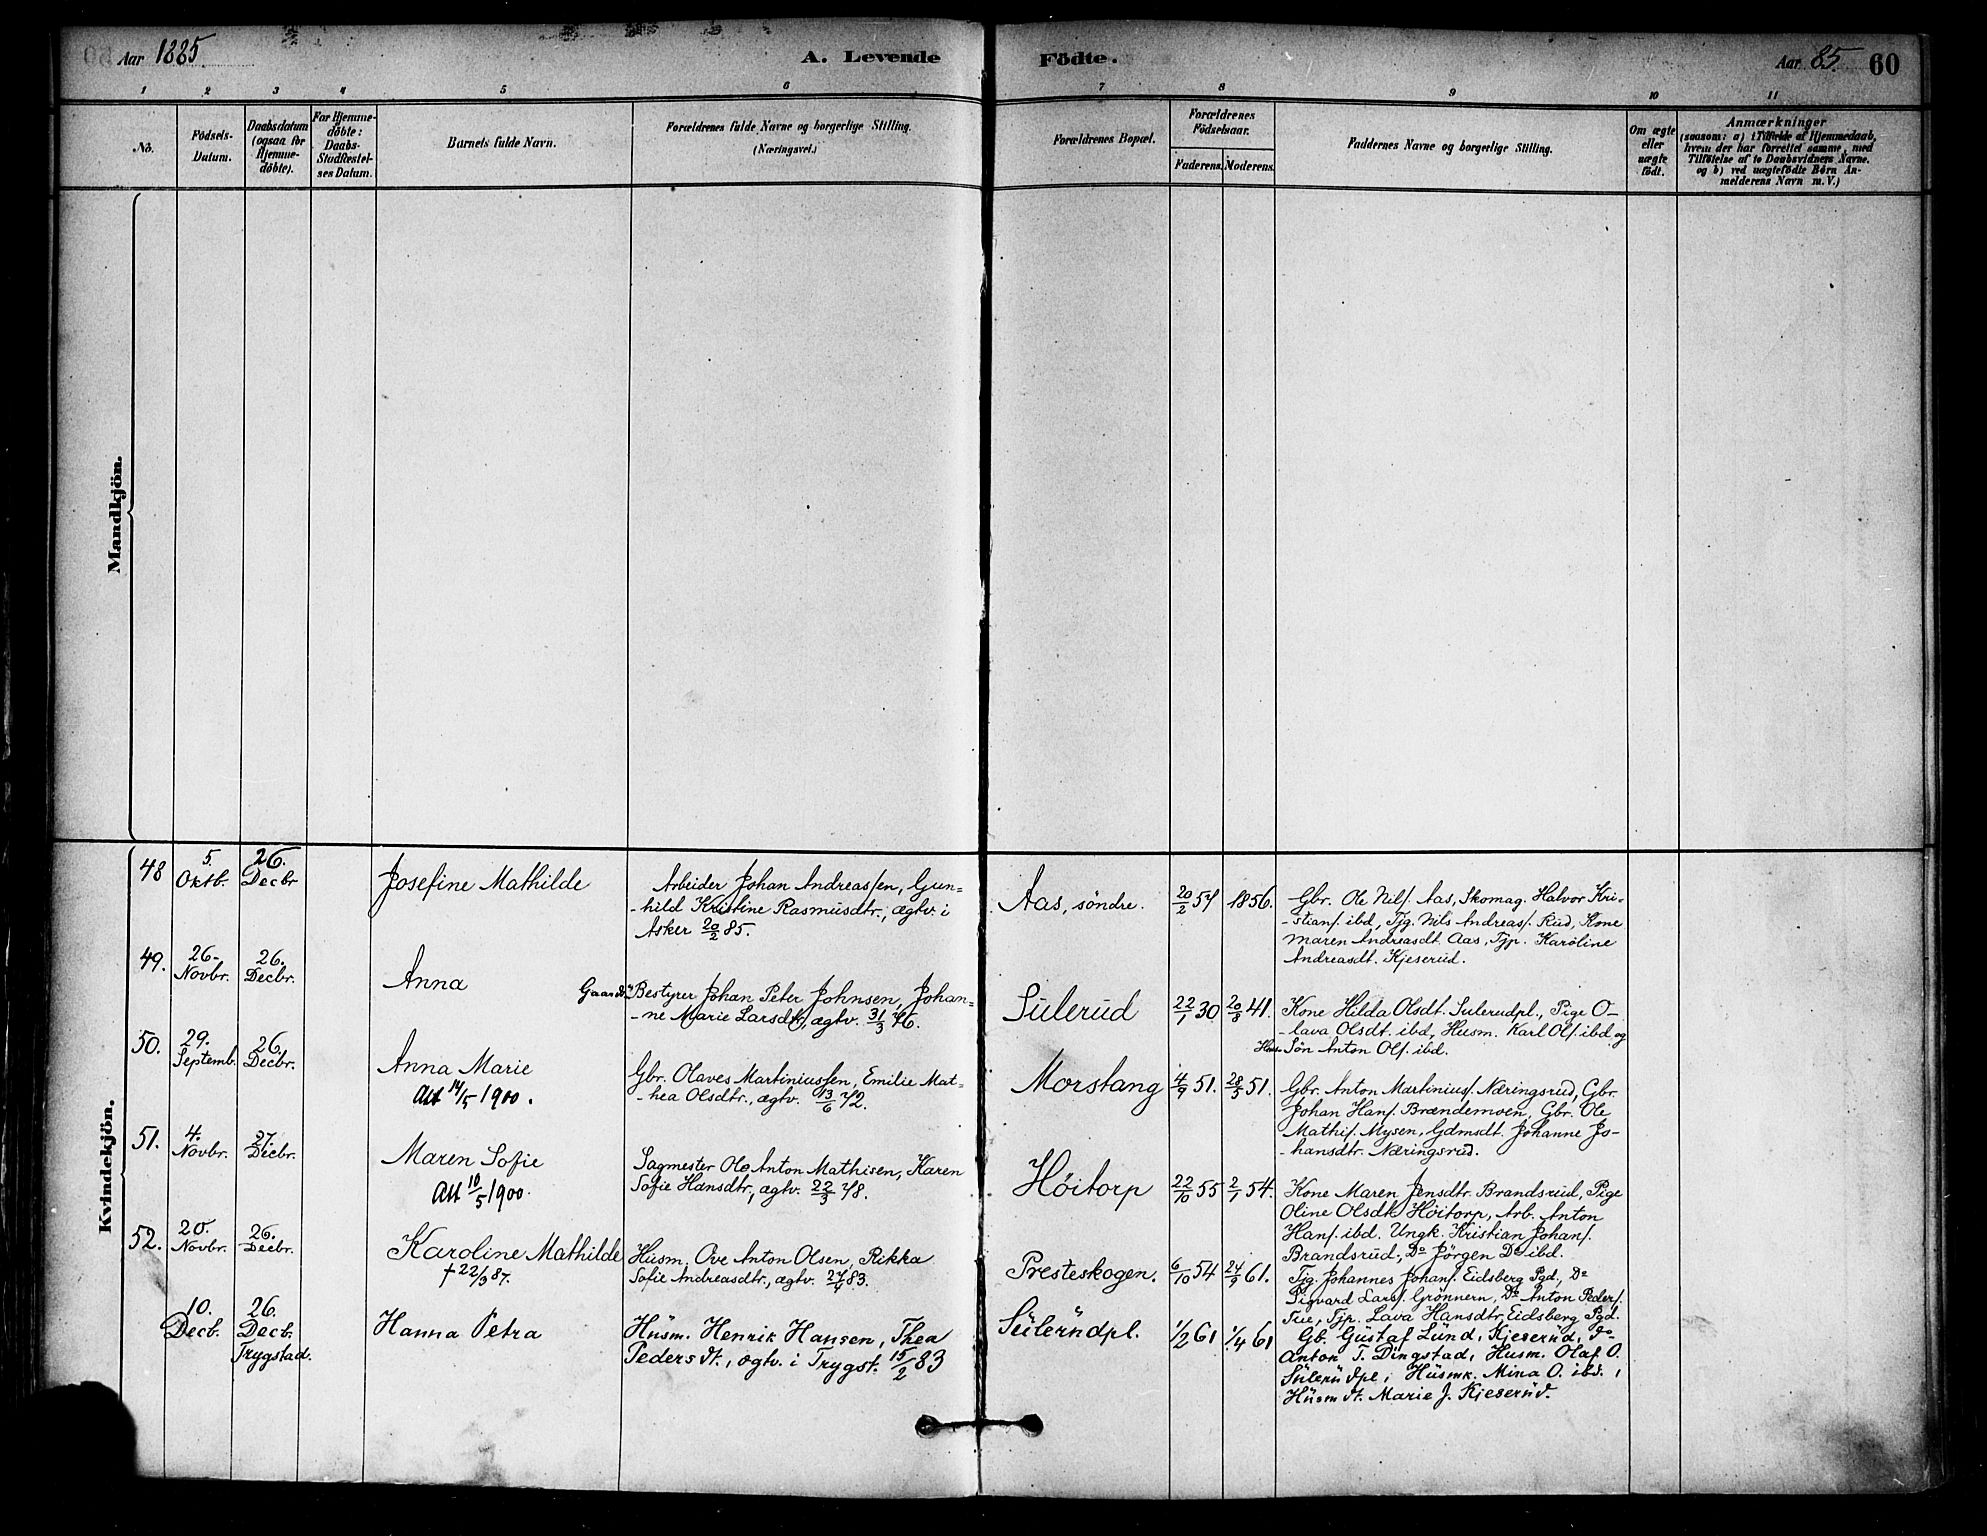 Aar 1885.
A. Levende Födte.
Aar 85. 60
1 2 3 4 5 6 7 8 9 10 11
No.
Födsels-
Datum.
Daabsdatum
(ogsaa for
Hjemme-
döbte).
For Hjemme-
döbte:
Daabs-
Stadfæstel-
ses Datum.
Barnets fulde Navn.
Forældrenes fulde Navne og borgerlige Stilling.
(Næringsvei.)
Forældrenes Bopæl.
Forældrenes
Födselsaar.
Faderens. Moderens.
Faddernes Navne og borgerlige Stilling.
Om ægte
eller
uægte
födt.
Anmærkninger
(saasom: a) i Tilfælde af Hjemmedaab,
hvem der har forrettet samme, med
Tilföielse af to Daabsvidners Navne.
og b) ved uægtefödte Börn An-
melderens Navn m. V.)
Mandkjön.
Kvindekjön.
48
5.
Oktb.
26.
Decbr
Josefine Mathilde
Arbeider Johan Andreassen, Gun-
-hild Kristine Rasmusdtr., ægtv. i
Asker 20/2 85.
Aas, söndre.
20/2 57
1856.
Gbr. Ole Nils. Aas, Skomag. Halvor Kri-
-stians. ibd, Tjg. Nils Andreas. Rud, Kone
Maren Andreasdt. Aas, Tjp. Karoline
Andreasdt. Kjeserud.
49.
26-
Novbr.
26.
Decbr.
Anna
Gaards Bestyrer Johan Peter Johnsen, Johan-
-ne Marie Larsdtr, ægtv. 31/3 76.
Sulerud
22/1 30
20/8 41.
Kone Hilda Olsdt. Sulerudpl., Pige O-
-lava Olsdt. ibd, Husm. Karl Ols. ibd og
Sön Anton Ols. ibd.
50.
29.
Septemb.
26.
Decbr.
Anna Marie
Att 14/5 1900.
Gbr. Olaves Martiniussen, Emilie Mat-
-hea Olsdtr., ægtv. 13/6 72.
Morstang
4/9 51.
28/3 51.
Gbr. Anton Martinius. Næringsrud, Gbr.
Johan Hans. Brændemoen, Gbr. Ole
Mathis. Mysen, Gdmsdt. Johanne Jo-
-hansdtr. Næringsrud.
51.
4.
Novbr.
27.
Decbr.
Maren Sofie
Att 10/5 1900.
Sagmester Ole Anton Mathisen, Karen
Sofie Hansdtr, ægtv. 22/3 78.
Höitorp
22/10 55
2/1 54.
Kone Maren Jensdtr. Brandsrud, Pige
Oline Olsdtr Höitorp, Arb. Anton
Hans. ibd. Ungk. Kristian Johans.
Brandsrud, Do Jörgen Do ibd.
52.
20.
Novbr.
26.
Decbr.
Karoline Mathilde
† 22/3 87.
Husm. Ove Anton Olsen, Rikka
Sofie Andreasdtr., ægtv. 27/4 83.
Presteskogen.
6/10 54
24/9 61.
Tjg. Johannes Johans. Eidsberg Pgd., Do
Sigvard Lars. Grönnern, Do Anton Peders.
Tue, Tjp. Lava Hansdtr, Eidsberg Pgd.
10.
Decb.
26.
Decb.
Trygstad.
Hanna Petra
Husm. Henrik Hansen, Thea
Pedersdt., ægtv. i Trygst. 15/2 83
Sulerudpl.
1/2 61
1/4 61
Gb. Gustaf Lund, Kjeserud, do
Anton T. Dingstad, Husm. Olaf O.
Sulerudpl, Husmk. Mina O. ibd.,
Husmdt. Marie J. Kjeserud.